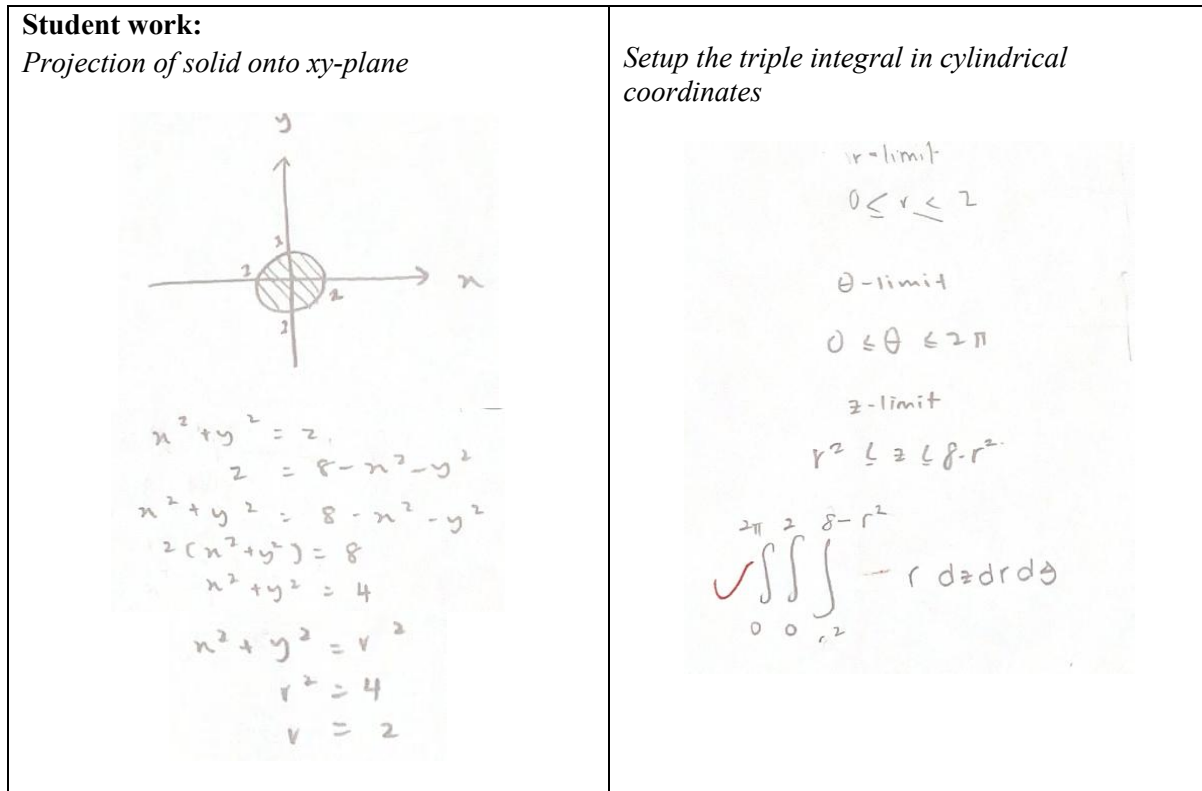 Student work:
Projection of solid onto xy-plane
y
x
2
2
2
2
x² + y² = z
z = 8 - x² - y²
x² + y² = 8 - x² - y²
2(x² + y²) = 8
x² + y² = 4
x² + y² = r²
r² = 4
r = 2
Setup the triple integral in cylindrical
coordinates
r-limit
0 ≤ r ≤ 2
θ-limit
0 ≤ θ ≤ 2π
z-limit
r² ≤ z ≤ 8-r²
2π 2 8-r²
✓∫∫∫ - r dzdrdθ
0 0 r²